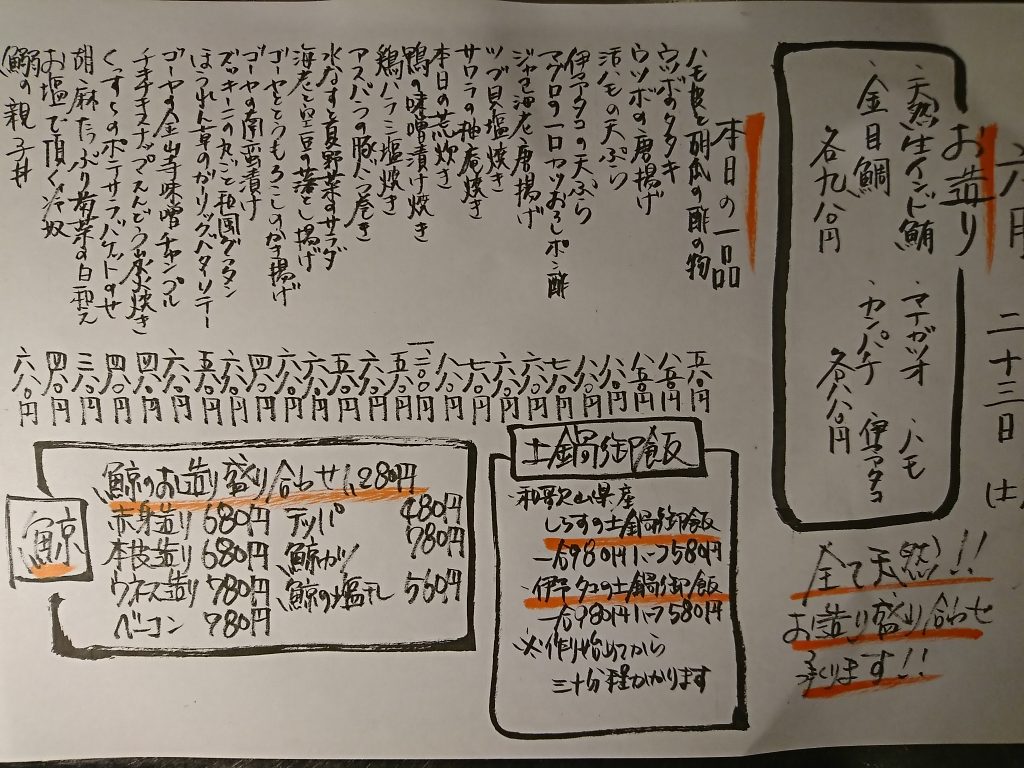 六月 二十三日 (土)
お造り
天然生インド鮪 マナガツオ ハモ
金目鯛 カンパチ 伊予タコ
各九八〇円 各八八〇円
全て天然!!
お造り盛り合わせ
承ります!!
本日の一品
ハモ皮と胡瓜の酢の物 五八〇円
ウツボのタタキ 八五〇円
ウツボの唐揚げ 八五〇円
活ハモの天ぷら 八八〇円
伊予タコの天ぷら 八八〇円
マグロの一口カツおろしポン酢 七八〇円
ジャコ海老唐揚げ 六八〇円
ツブ貝塩焼き 六八〇円
サワラの柚庵焼き 七八〇円
本日の荒炊き 八八〇円
鴨の味噌漬け焼き 一二〇〇円
鶏ハラミ塩焼き 六八〇円
アスパラの豚バラ巻き 五八〇円
水なすと夏野菜のサラダ 六八〇円
海老と豆の落とし揚げ 六八〇円
ゴーヤとうもろこしのかき揚げ 六八〇円
ゴーヤの南蛮漬け 四八〇円
ズッキーニの丸ごと和風グラタン 六八〇円
ほうれん草のガーリックバターソテー 五八〇円
ゴーヤの金山寺味噌チャンプル 六八〇円
チキチキスナップえんどう炭火焼き 四八〇円
くっすんのポテサラバケットのせ 四八〇円
胡麻たっぷり菊菜の白和え 三八〇円
お塩で頂く冷奴 四八〇円
鰯の親子丼 六八〇円
土鍋御飯
・和歌山県産
しらすの土鍋御飯
一合980円 1/2つ580円
・伊予タコの土鍋御飯
一合980円 1/2つ580円
※作り始めてから
三十分程かかります
鯨
鯨のお造り盛り合わせ1,280円
赤身造り 680円 テッパ 480円
本皮造り 680円 鯨カツ 780円
ウネス造り 780円 鯨の塩干し 560円
ベーコン 980円